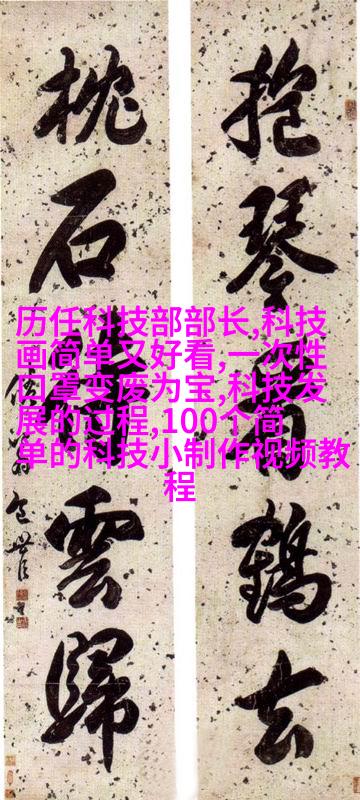 抱琴鶴去
枕石雲歸
包世臣
历任科技部部长,科技
画简单又好看,一次性
口罩变废为宝,科技发
展的过程,100个简
单的科技小制作视频教
程